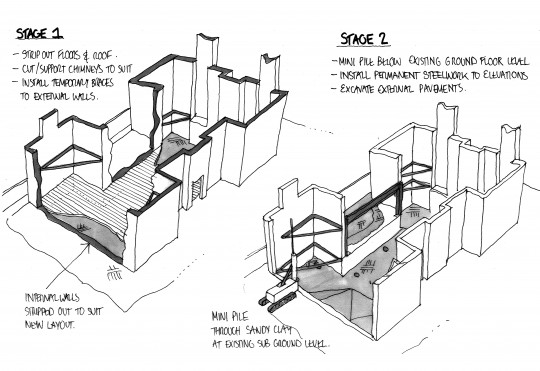 STAGE 1
- STRIP OUT FLOORS & ROOF.
- CUT/SUPPORT CHIMNEYS TO SUIT
- INSTALL TEMPORARY BRACES
TO EXTERNAL WALLS.
INTERNAL WALLS
STRIPPED OUT TO SUIT
NEW LAYOUT.
STAGE 2
- MINI PILE BELOW EXISTING GROUND FLOOR LEVEL
- INSTALL PERMANENT STEELWORK TO ELEVATIONS
- EXCAVATE EXTERNAL PAVEMENTS.
MINI PILE
THROUGH SANDY CLAY
AT EXISTING SUB GROUND LEVEL.